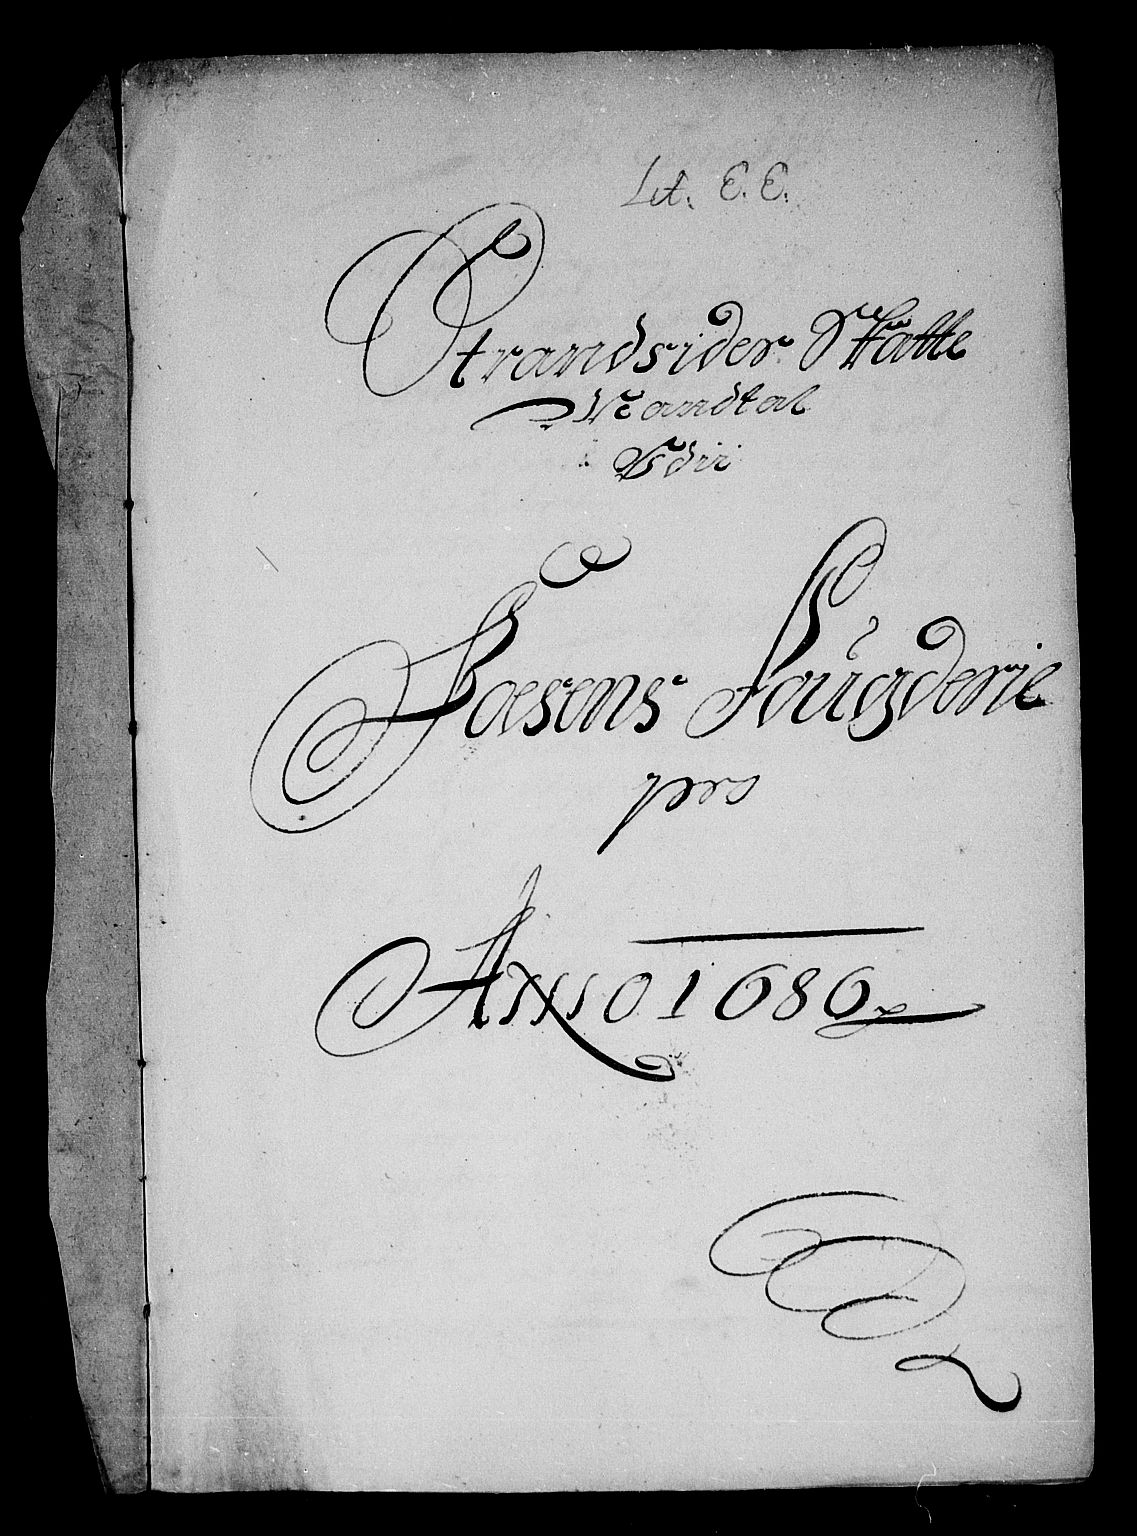 Lit. E. E.
Strandsider Skatte
Mandtal
Udii
Fosens Fougderie
pro
Anno 1686